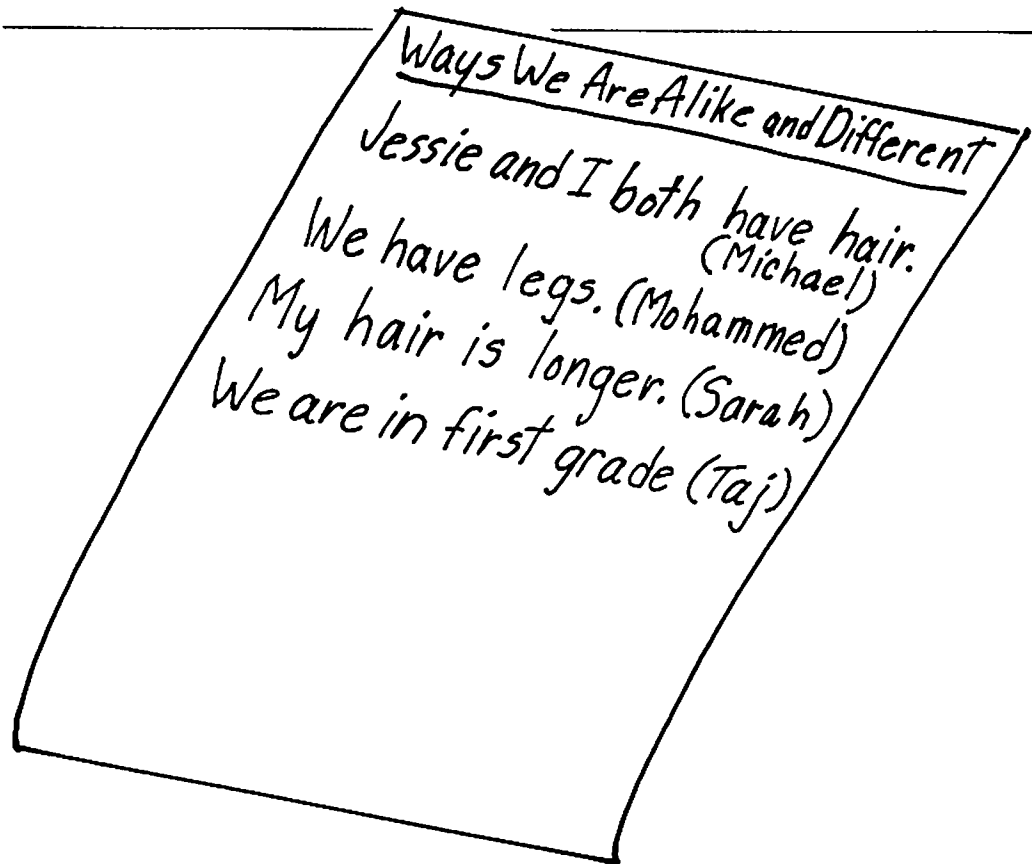 Ways We Are Alike and Different
Jessie and I both have hair.
(Michael)
We have legs. (Mohammed)
My hair is longer. (Sarah)
We are in first grade (Taj)